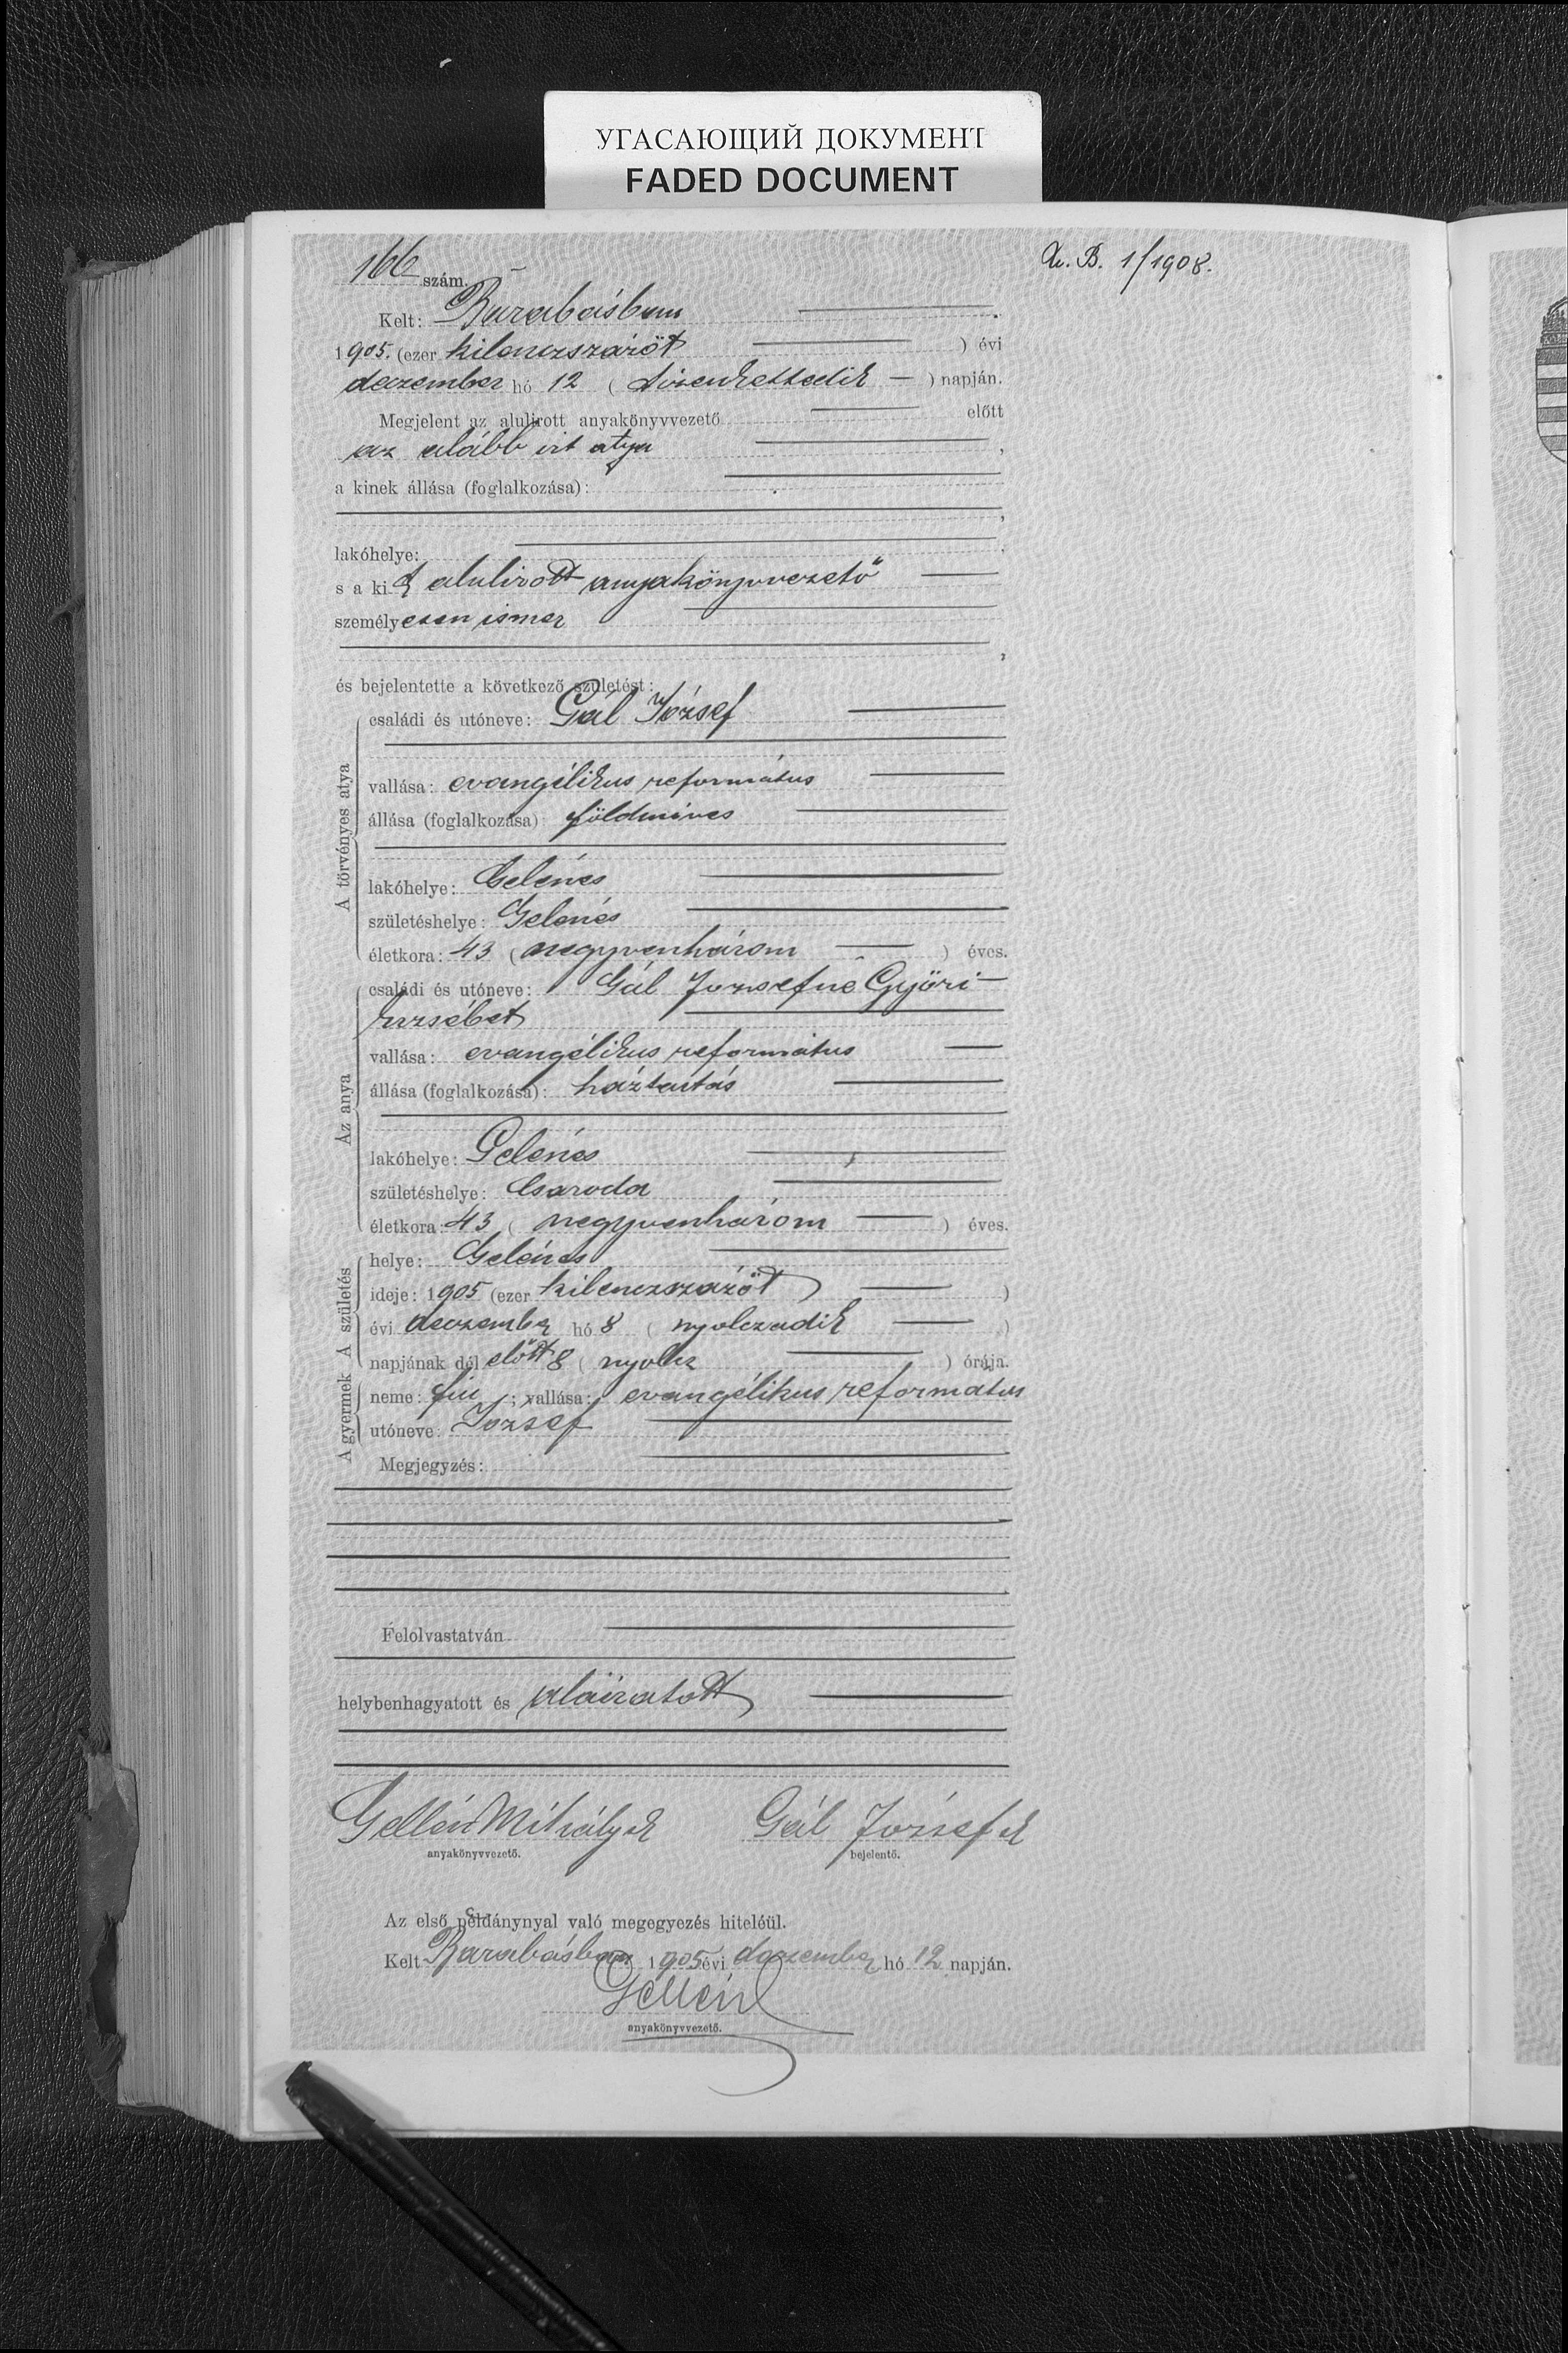 УГАСАЮЩИЙ ДОКУМЕНТ
FADED DOCUMENT
166 szám.
A. B. 1/1908.
Kelt: Barabásban
1905. (ezer kilenczszázöt ) évi
deczember hó 12 ( tizenkettedik — ) napján.
Megjelent az alulirott anyakönyvvezető előtt
az alább irt atya ,
a kinek állása (foglalkozása):
,
lakóhelye: ,
s a kit alulirott anyakönyvvezető
személyesen ismer
,
és bejelentette a következő születést:
A törvényes atya
családi és utóneve: Gál József
vallása: evangélikus református
állása (foglalkozása) földmives
lakóhelye: Gelénes
születéshelye: Gelénes
életkora: 43 ( negyvenhárom ) éves.
Az anya
családi és utóneve: Gál Józsefné Győri
Erzsébet
vallása: evangélikus református
állása (foglalkozása): háztartás
lakóhelye: Gelénes
születéshelye: Csaroda
életkora: 43 ( negyvenhárom ) éves.
A születés
helye: Gelénes
ideje: 1905 (ezer kilenczszázöt )
évi deczember hó 8 ( nyolczadik )
napjának dél előtt 8 ( nyolcz ) órája.
A gyermek
neme: fiu ; vallása: evangélikus református
utóneve: József
Megjegyzés:
Felolvastatván
helybenhagyatott és aláiratott
Gellén Mihály sk Gál József sk
anyakönyvvezető. bejelentő.
Az első példánynyal való megegyezés hiteléül.
Kelt Barabásban 1905 évi deczember hó 12 napján.
Gellén
anyakönyvvezető.